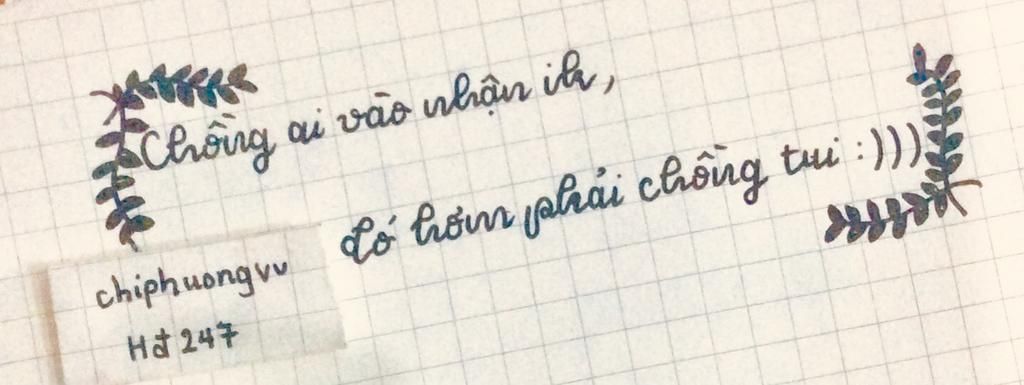 Chồng ai vào nhận ik,
đó hơm phải chồng tui :)))
chiphuongvv
Hđ 247